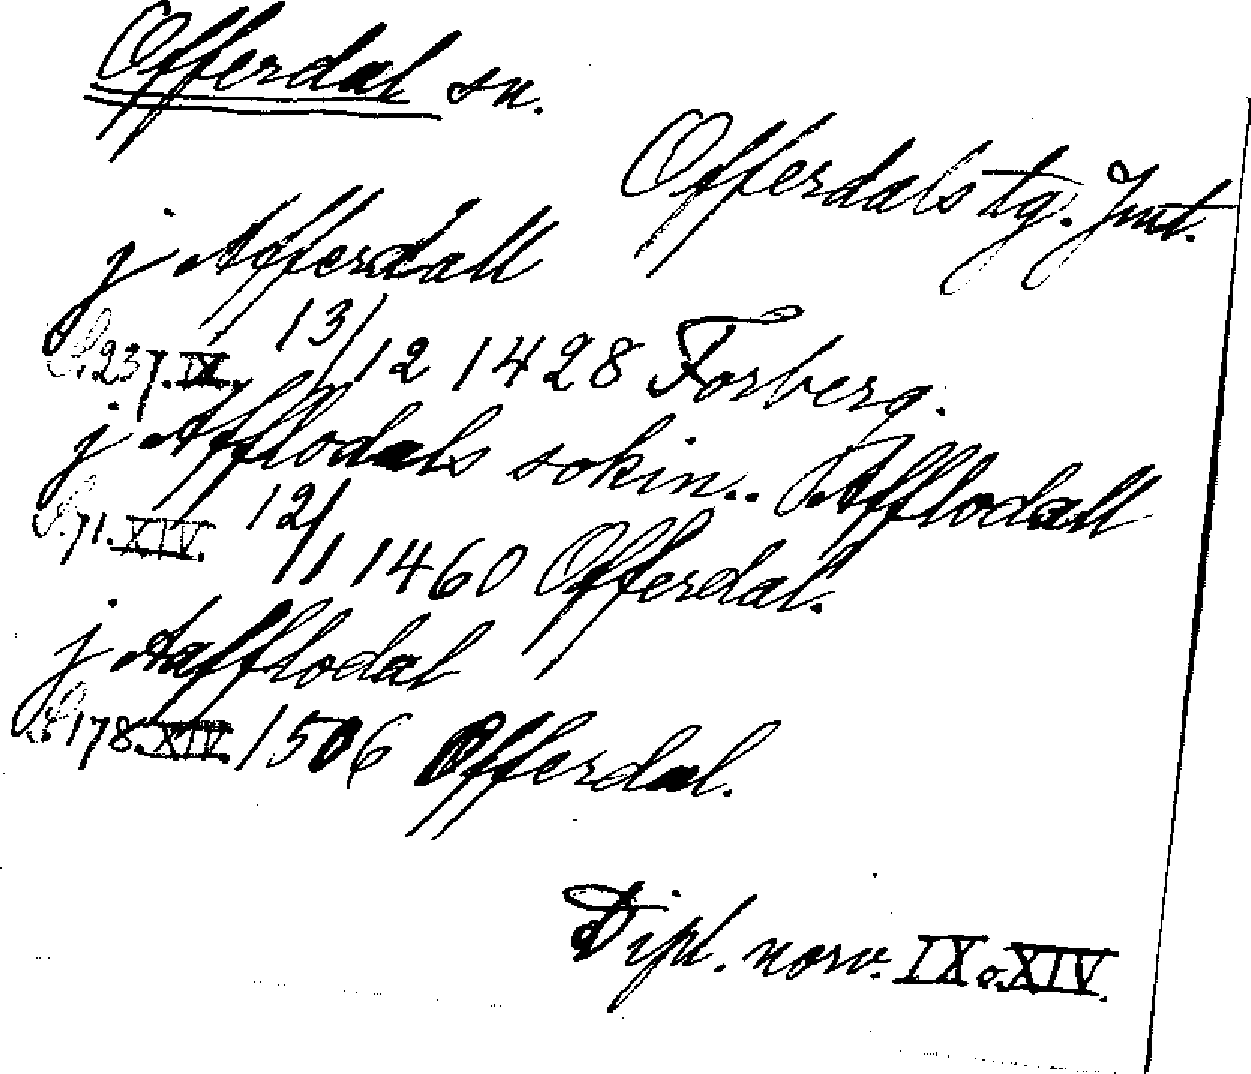 Offerdal sn.
Offerdals tg. Jmt.
j Afferdall
S. 237. IX. 13/12 1428 Forberg.
j Afflodals sokin.. Afflodall
S. 71. XIV. 12/1 1460 Offerdal.
j Aafflodal
S. 178. XIV. 1506 Offerdal.
Dipl. norv. IX o. XIV.